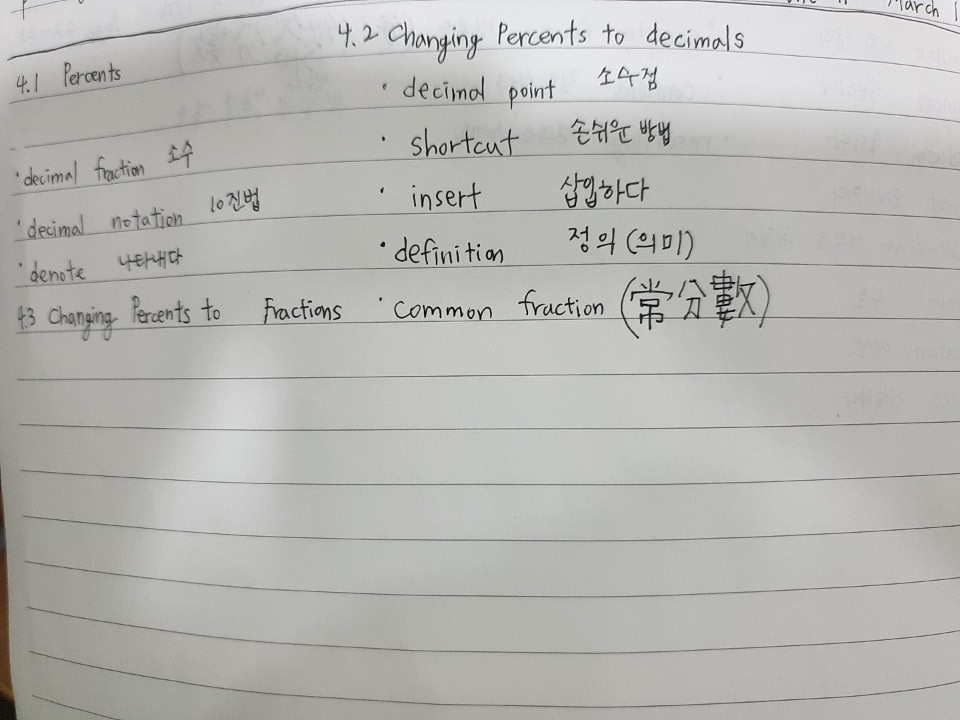 March 1
4.2 Changing Percents to decimals
4.1 Percents
· decimal point 소수점
· shortcut 손쉬운 방법
· decimal fraction 소수
· insert 삽입하다
· decimal notation 10진법
· definition 정의 (의미)
· denote 나타내다
4.3 Changing Percents to Fractions · Common fraction (常分數)